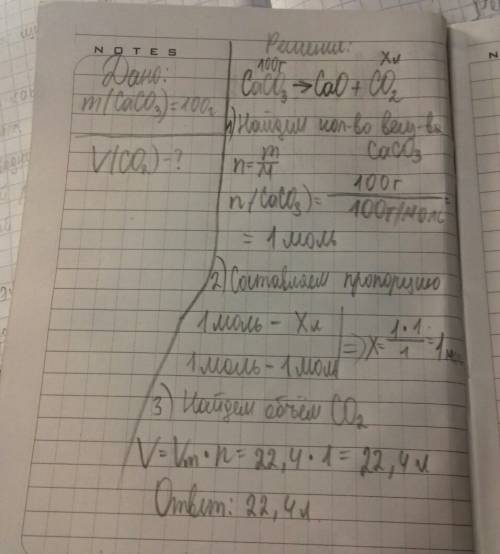 NOTES
Дано:
m(CaCO3)=100г
V(CO2)-?
Решение:
100г Xл
CaCO3→CaO+CO2
1) Найдем кол-во вещ-ва
CaCO3
n=m/M
n(CaCO3)=100г/100г/моль
=1 моль
2) Составляем пропорцию
1 моль - Xл
1 моль - 1 моль
=> X=1·1/1=1 моль
3) Найдем объём CO2
V=Vm·n=22,4·1=22,4л
Ответ: 22,4л